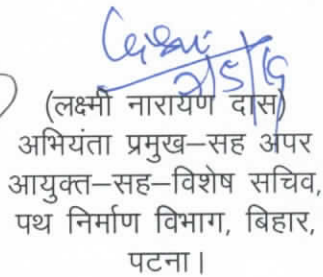 (लक्ष्मी नारायण दास)
अभियंता प्रमुख–सह अपर
आयुक्त–सह–विशेष सचिव,
पथ निर्माण विभाग, बिहार,
पटना।